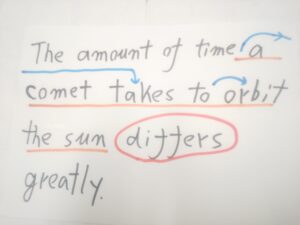 The amount of time a
comet takes to orbit
the sun differs
greatly.